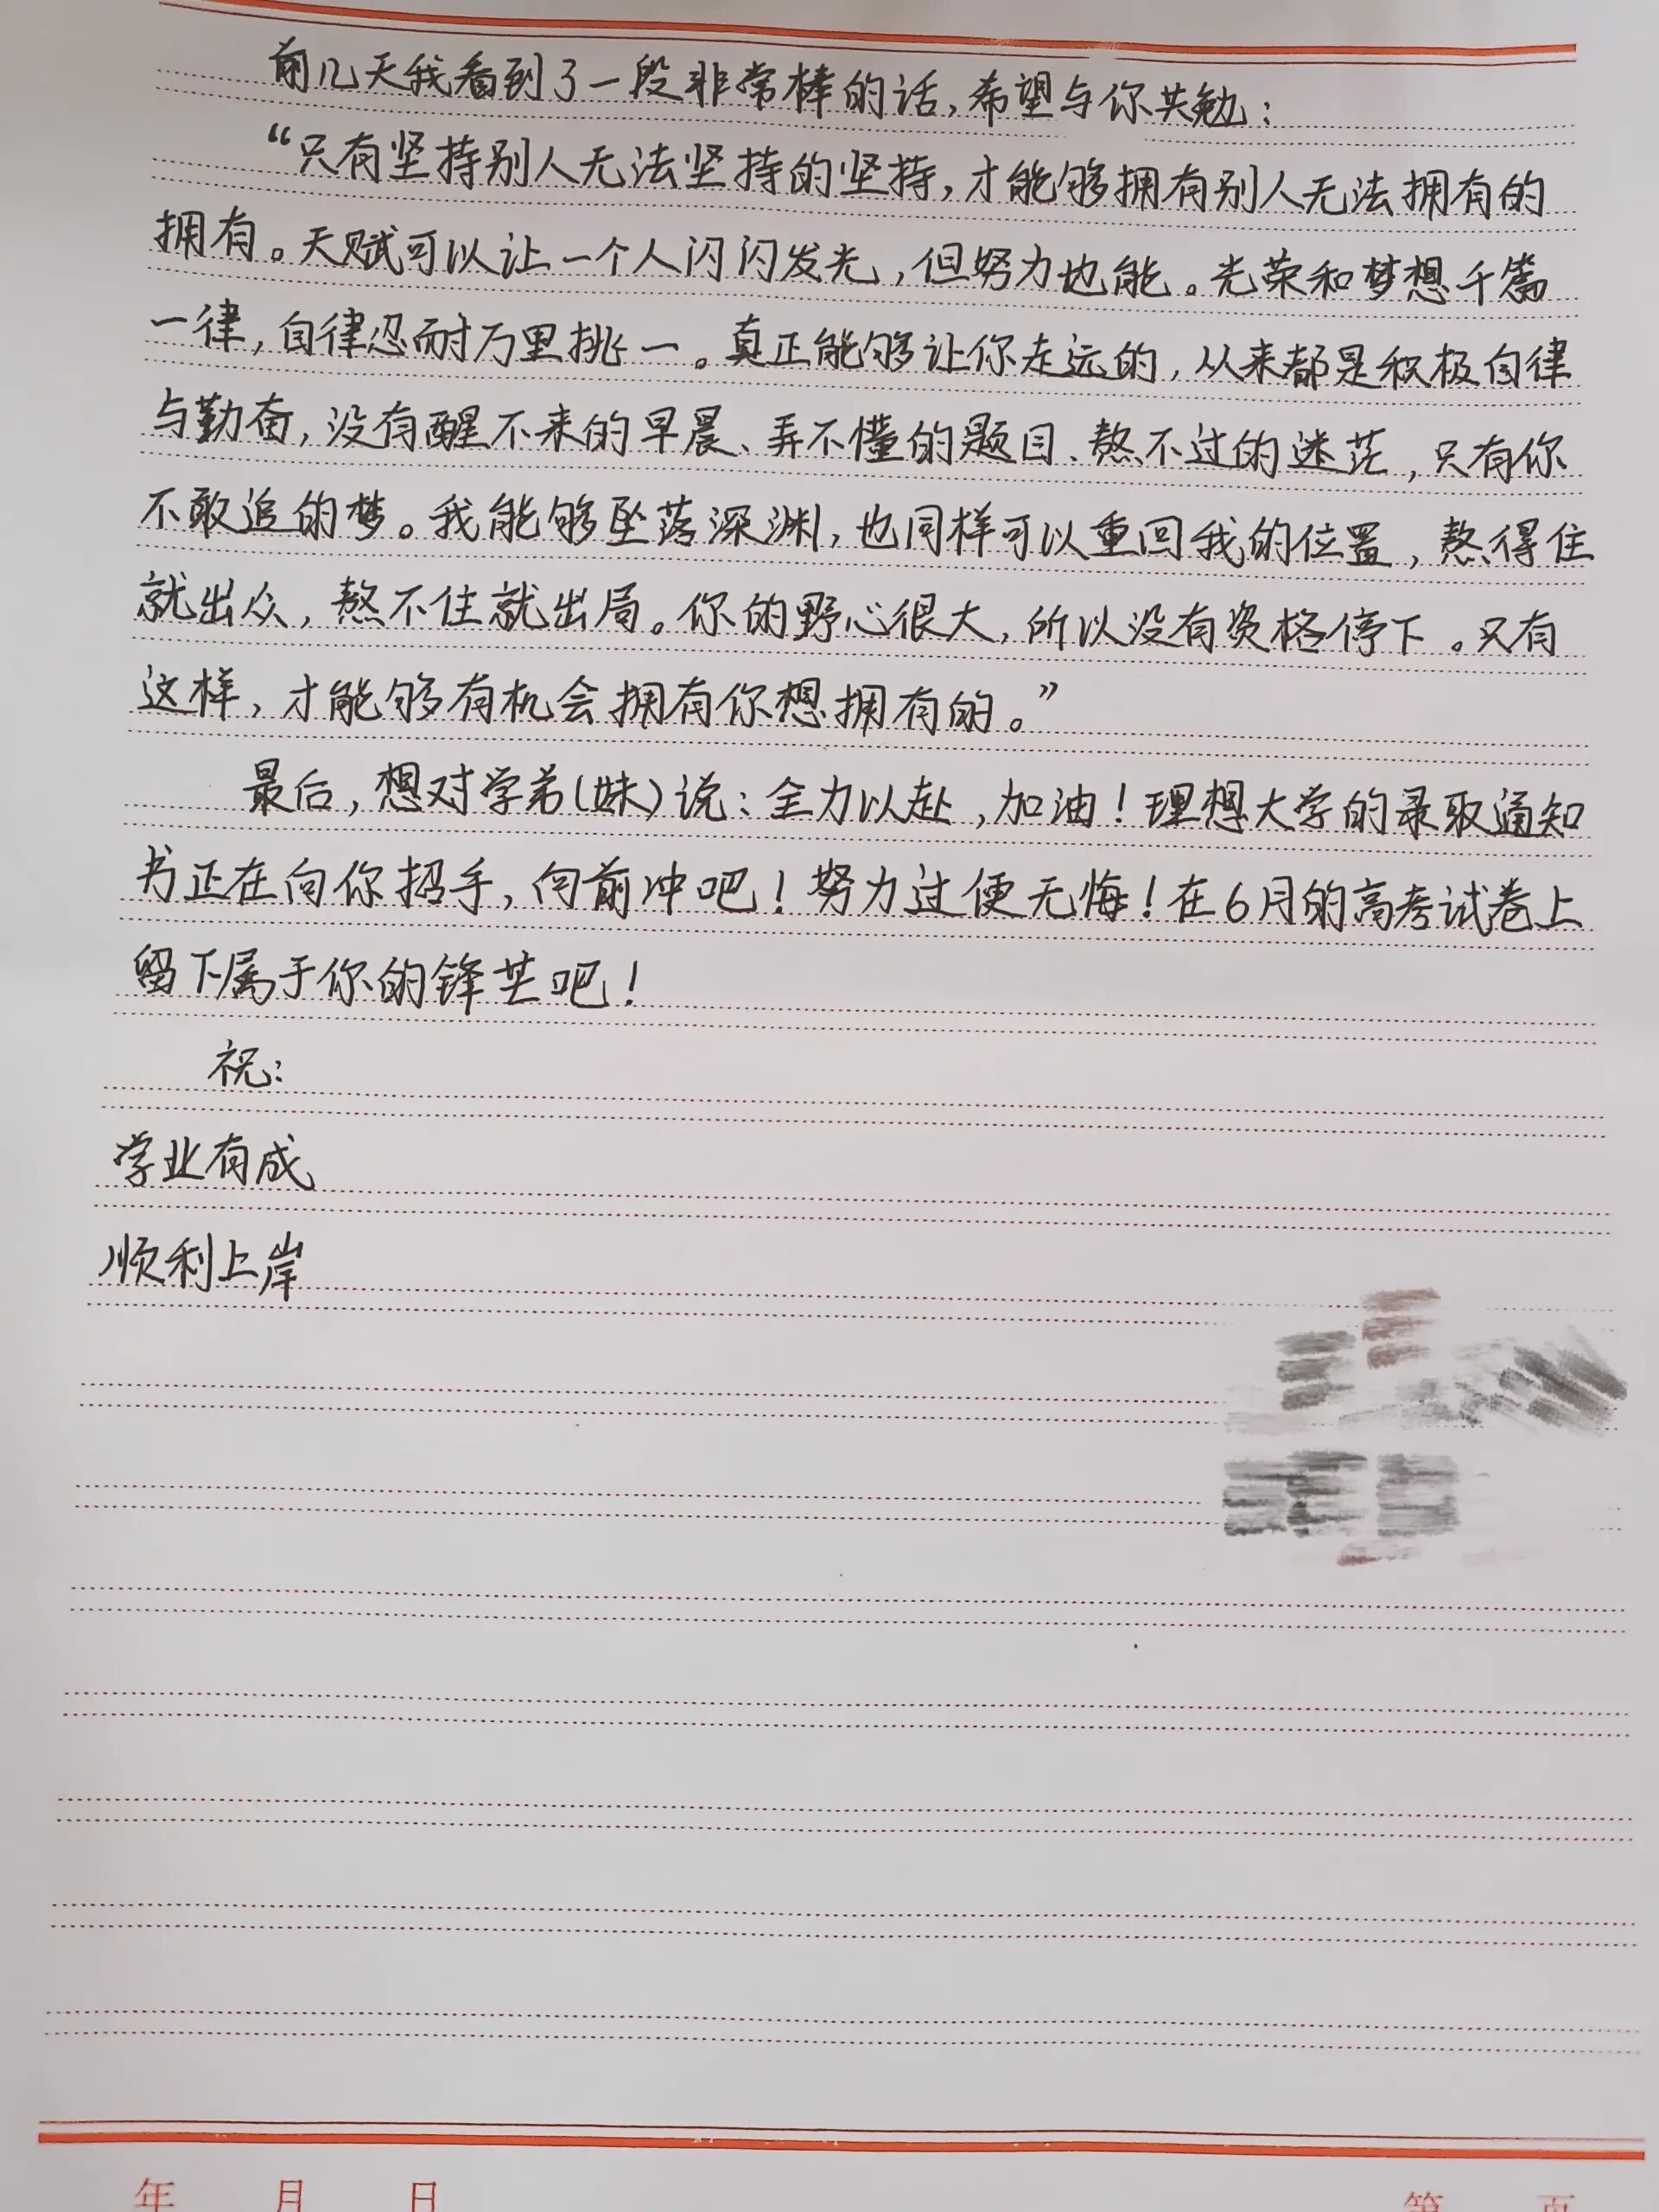 前几天我看到了一段非常棒的话,希望与你共勉:
“只有坚持别人无法坚持的坚持,才能够拥有别人无法拥有的
拥有。天赋可以让一个人闪闪发光,但努力也能。光荣和梦想千篇
一律,自律忍耐万里挑一。真正能够让你走远的,从来都是积极自律
与勤奋,没有醒不来的早晨、弄不懂的题目、熬不过的迷茫,只有你
不敢追的梦。我能够坠落深渊,也同样可以重回我的位置,熬得住
就出众,熬不住就出局。你的野心很大,所以没有资格停下。只有
这样,才能够有机会拥有你想拥有的。”
最后,想对学弟(妹)说:全力以赴,加油!理想大学的录取通知
书正在向你招手,向前冲吧!努力过便无悔!在6月的高考试卷上
留下属于你的锋芒吧!
祝:
学业有成
顺利上岸
年 月 日 第 页